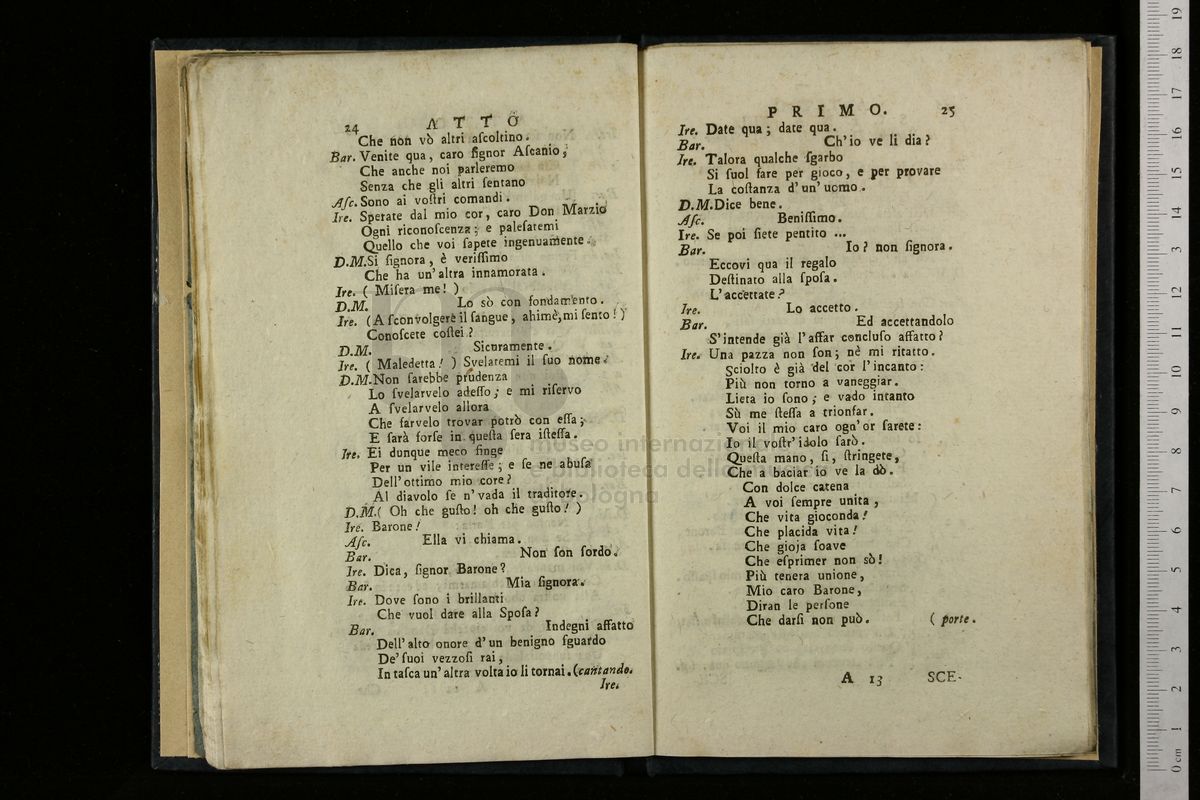 24 ATTO
Che non vò altri aſcoltino.
Bar. Venite qua, caro ſignor Aſcanio,
Che anche noi parleremo
Senza che gli altri ſentano
Aſc. Sono ai voſtri comandi.
Ire. Sperate dal mio cor, caro Don Marzio
Ogni riconoſcenza; e paleſatemi
Quello che voi ſapete ingenuamente.
D.M. Si ſignora, è veriſſimo
Che ha un'altra innamorata.
Ire. ( Miſera me! )
D.M. Lo sò con fondamento.
Ire. (A ſconvolgere il ſangue, ahimè, mi ſento!)
Conoſcete coſtei?
D.M. Sicuramente.
Ire. ( Maledetta! ) Svelatemi il ſuo nome.
D.M. Non ſarebbe prudenza
Lo ſvelarvelo adeſſo; e mi riſervo
A ſvelarvelo allora
Che farvelo trovar potrò con eſſa;
E ſarà forſe in queſta ſera iſteſſa.
Ire. Ei dunque meco finge
Per un vile intereſſe; e ſe ne abuſa
Dell'ottimo mio core?
Al diavolo ſe n'vada il traditore.
D.M. ( Oh che guſto! oh che guſto! )
Ire. Barone!
Aſc. Ella vi chiama.
Bar. Non ſon ſordo.
Ire. Dica, ſignor Barone?
Bar. Mia ſignora.
Ire. Dove ſono i brillanti
Che vuol dare alla Spoſa?
Bar. Indegni affatto
Dell'alto onore d'un benigno ſguardo
De'ſuoi vezzoſi rai,
In taſca un'altra volta io li tornai. (cantando.
Ire.
PRIMO. 25
Ire. Date qua; date qua.
Bar. Ch'io ve li dia?
Ire. Talora qualche ſgarbo
Si ſuol fare per gioco, e per provare
La coſtanza d'un'uomo.
D.M. Dice bene.
Aſc. Beniſſimo.
Ire. Se poi ſiete pentito ...
Bar. Io? non ſignora.
Eccovi qua il regalo
Deſtinato alla ſpoſa.
L'accettate?
Ire. Lo accetto.
Bar. Ed accettandolo
S'intende già l'affar concluſo affatto?
Ire. Una pazza non ſon; nè mi ritatto.
Sciolto è già del cor l'incanto:
Più non torno a vaneggiar.
Lieta io ſono; e vado intanto
Sù me ſteſſa a trionfar.
Voi il mio caro ogn'or ſarete:
Io il voſtr'idolo ſarò.
Queſta mano, ſi, ſtringete,
Che a baciar io ve la dò.
Con dolce catena
A voi ſempre unita,
Che vita gioconda!
Che placida vita!
Che gioja ſoave
Che eſprimer non sò!
Più tenera unione,
Mio caro Barone,
Diran le perſone
Che darſi non può. ( parte.
A 13 SCE-
museo internazionale
e biblioteca della musica
bologna
0 cm 1 2 3 4 5 6 7 8 9 10 11 12 13 14 15 16 17 18 19